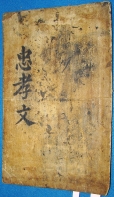 忠孝文